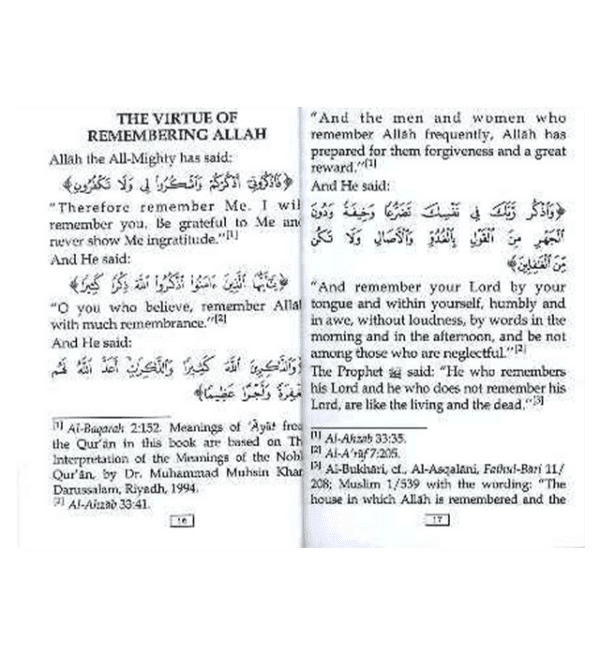 THE VIRTUE OF
REMEMBERING ALLAH
Allâh the All-Mighty has said:
﴿فَاذْكُرُونِي أَذْكُرْكُمْ وَاشْكُرُوا لِي وَلَا تَكْفُرُونِ﴾
"Therefore remember Me. I wil
remember you. Be grateful to Me an
never show Me ingratitude."[1]
And He said:
﴿يَا أَيُّهَا الَّذِينَ ءَامَنُوا اذْكُرُوا اللَّهَ ذِكْرًا كَثِيرًا﴾
"O you who believe, remember Allâ
with much remembrance."[2]
And He said:
وَالذَّاكِرِينَ اللَّهَ كَثِيرًا وَالذَّاكِرَاتِ أَعَدَّ اللَّهُ لَهُم
مَّغْفِرَةً وَأَجْرًا عَظِيمًا﴾
[1] Al-Baqarah 2:152. Meanings of 'Âyât from
the Qur'ân in this book are based on Th
Interpretation of the Meanings of the Nobl
Qur'ân, by Dr. Muhammad Muhsin Khan
Darussalam, Riyadh, 1994.
[2] Al-Ahzab 33:41.
16
"And the men and women who
remember Allâh frequently, Allâh has
prepared for them forgiveness and a great
reward."[1]
And He said:
﴿وَاذْكُر رَّبَّكَ فِي نَفْسِكَ تَضَرُّعًا وَخِيفَةً وَدُونَ
الْجَهْرِ مِنَ الْقَوْلِ بِالْغُدُوِّ وَالْآصَالِ وَلَا تَكُن
مِّنَ الْغَافِلِينَ﴾
"And remember your Lord by your
tongue and within yourself, humbly and
in awe, without loudness, by words in the
morning and in the afternoon, and be not
among those who are neglectful."[2]
The Prophet ﷺ said: "He who remembers
his Lord and he who does not remember his
Lord, are like the living and the dead."[3]
[1] Al-Ahzab 33:35.
[2] Al-A'râf 7:205.
[3] Al-Bukhâri, cf., Al-Asqalâni, Fathul-Bari 11/
208; Muslim 1/539 with the wording: "The
house in which Allâh is remembered and the
17